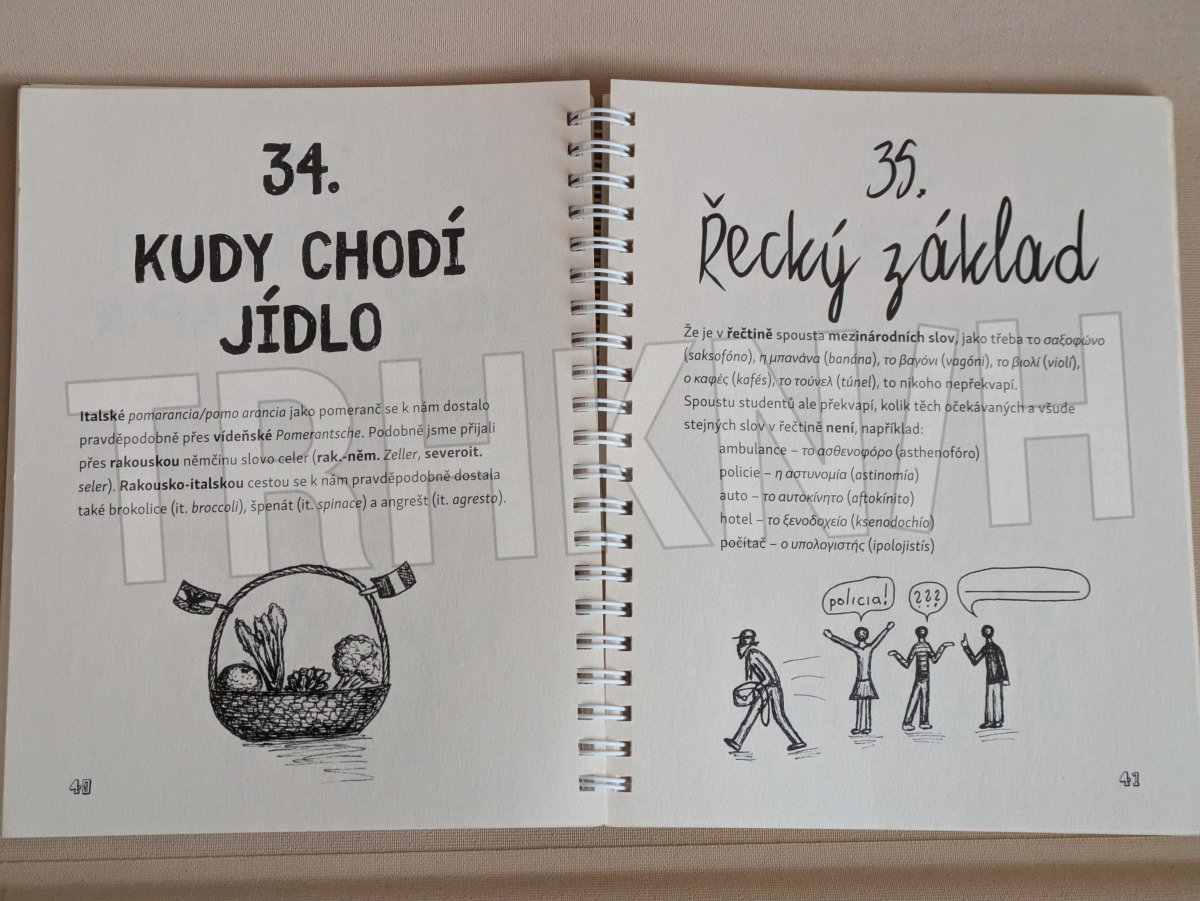 34.
KUDY CHODÍ
JÍDLO
Italské pomarancia/pomo arancia jako pomeranč se k nám dostalo
pravděpodobně přes vídeňské Pomerantsche. Podobně jsme přijali
přes rakouskou němčinu slovo celer (rak.-něm. Zeller, severoit.
seler). Rakousko-italskou cestou se k nám pravděpodobně dostala
také brokolice (it. broccoli), špenát (it. spinace) a angrešt (it. agresto).
40
35.
Řecký základ
Že je v řečtině spousta mezinárodních slov, jako třeba το σαξοφώνο
(saksofóno), η μπανάνα (banána), το βαγόνι (vagóni), το βιολί (violí),
ο καφές (kafés), το τούνελ (túnel), to nikoho nepřekvapí.
Spoustu studentů ale překvapí, kolik těch očekávaných a všude
stejných slov v řečtině není, například:
ambulance – το ασθενοφόρο (asthenofóro)
policie – η αστυνομία (astinomía)
auto – το αυτοκίνητο (aftokínito)
hotel – το ξενοδοχείο (ksenodochío)
počítač – ο υπολογιστής (ipolojistís)
policia!
???
41
TRHKNVH